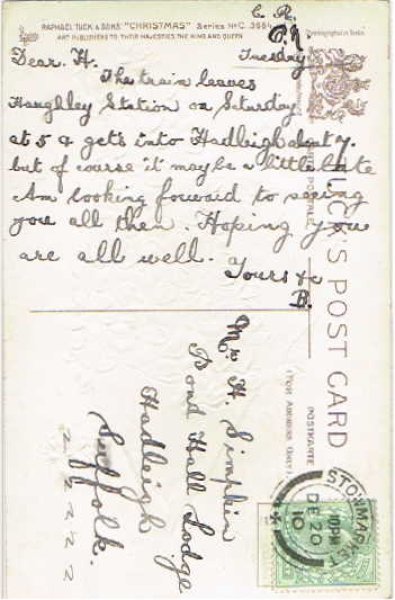 C. R.
RAPHAEL TUCK & SONS' "CHRISTMAS" Series No C. 
ART PUBLISHERS TO THEIR MAJESTIES THE KING AND QUEEN
Tuesday
Dear. H.
The train leaves
Haughley Station on Saturday
at 5 & gets into Hadleigh about 7.
but of course it may be a little late
Am looking forward to seeing
you all then. Hoping you
are all well.
Yours &c
B.
Mr H. Simpkin
Pond Hall Lodge
Hadleigh
Suffolk.
TUCK'S POST CARD
POSTKARTE
(FOR ADDRESS ONLY.)
STOWMARKET
DE 20
10